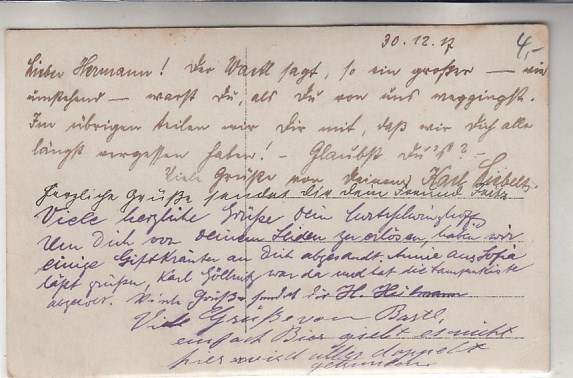 30.12.17
4,-
Lieber Hermann! Der Wastl sagt, so ein großer — wie
umstehend — warst Du, als Du von uns weggingst.
Im übrigen teilen wir Dir mit, daß wir Dich alle
längst vergessen haben! – Glaubst Du's? –
Viele Grüße von Deinem Karl Liebelt.
Herzliche Grüße sendet dir dein Freund Fritz
Viele herzliche Grüße dein
Um Dich von deinem Leiden zu erlösen, haben wir
einige Giftkräuter an Dich abgesandt. Annie aus Sofia
läßt grüßen, Karl war da und hat die
abgeholt. Viele Grüße sendet Dir H. Heilmann
Viele Grüße vom Bastl,
einfach Bier giebt es nicht
hier wird alles doppelt
getrunken